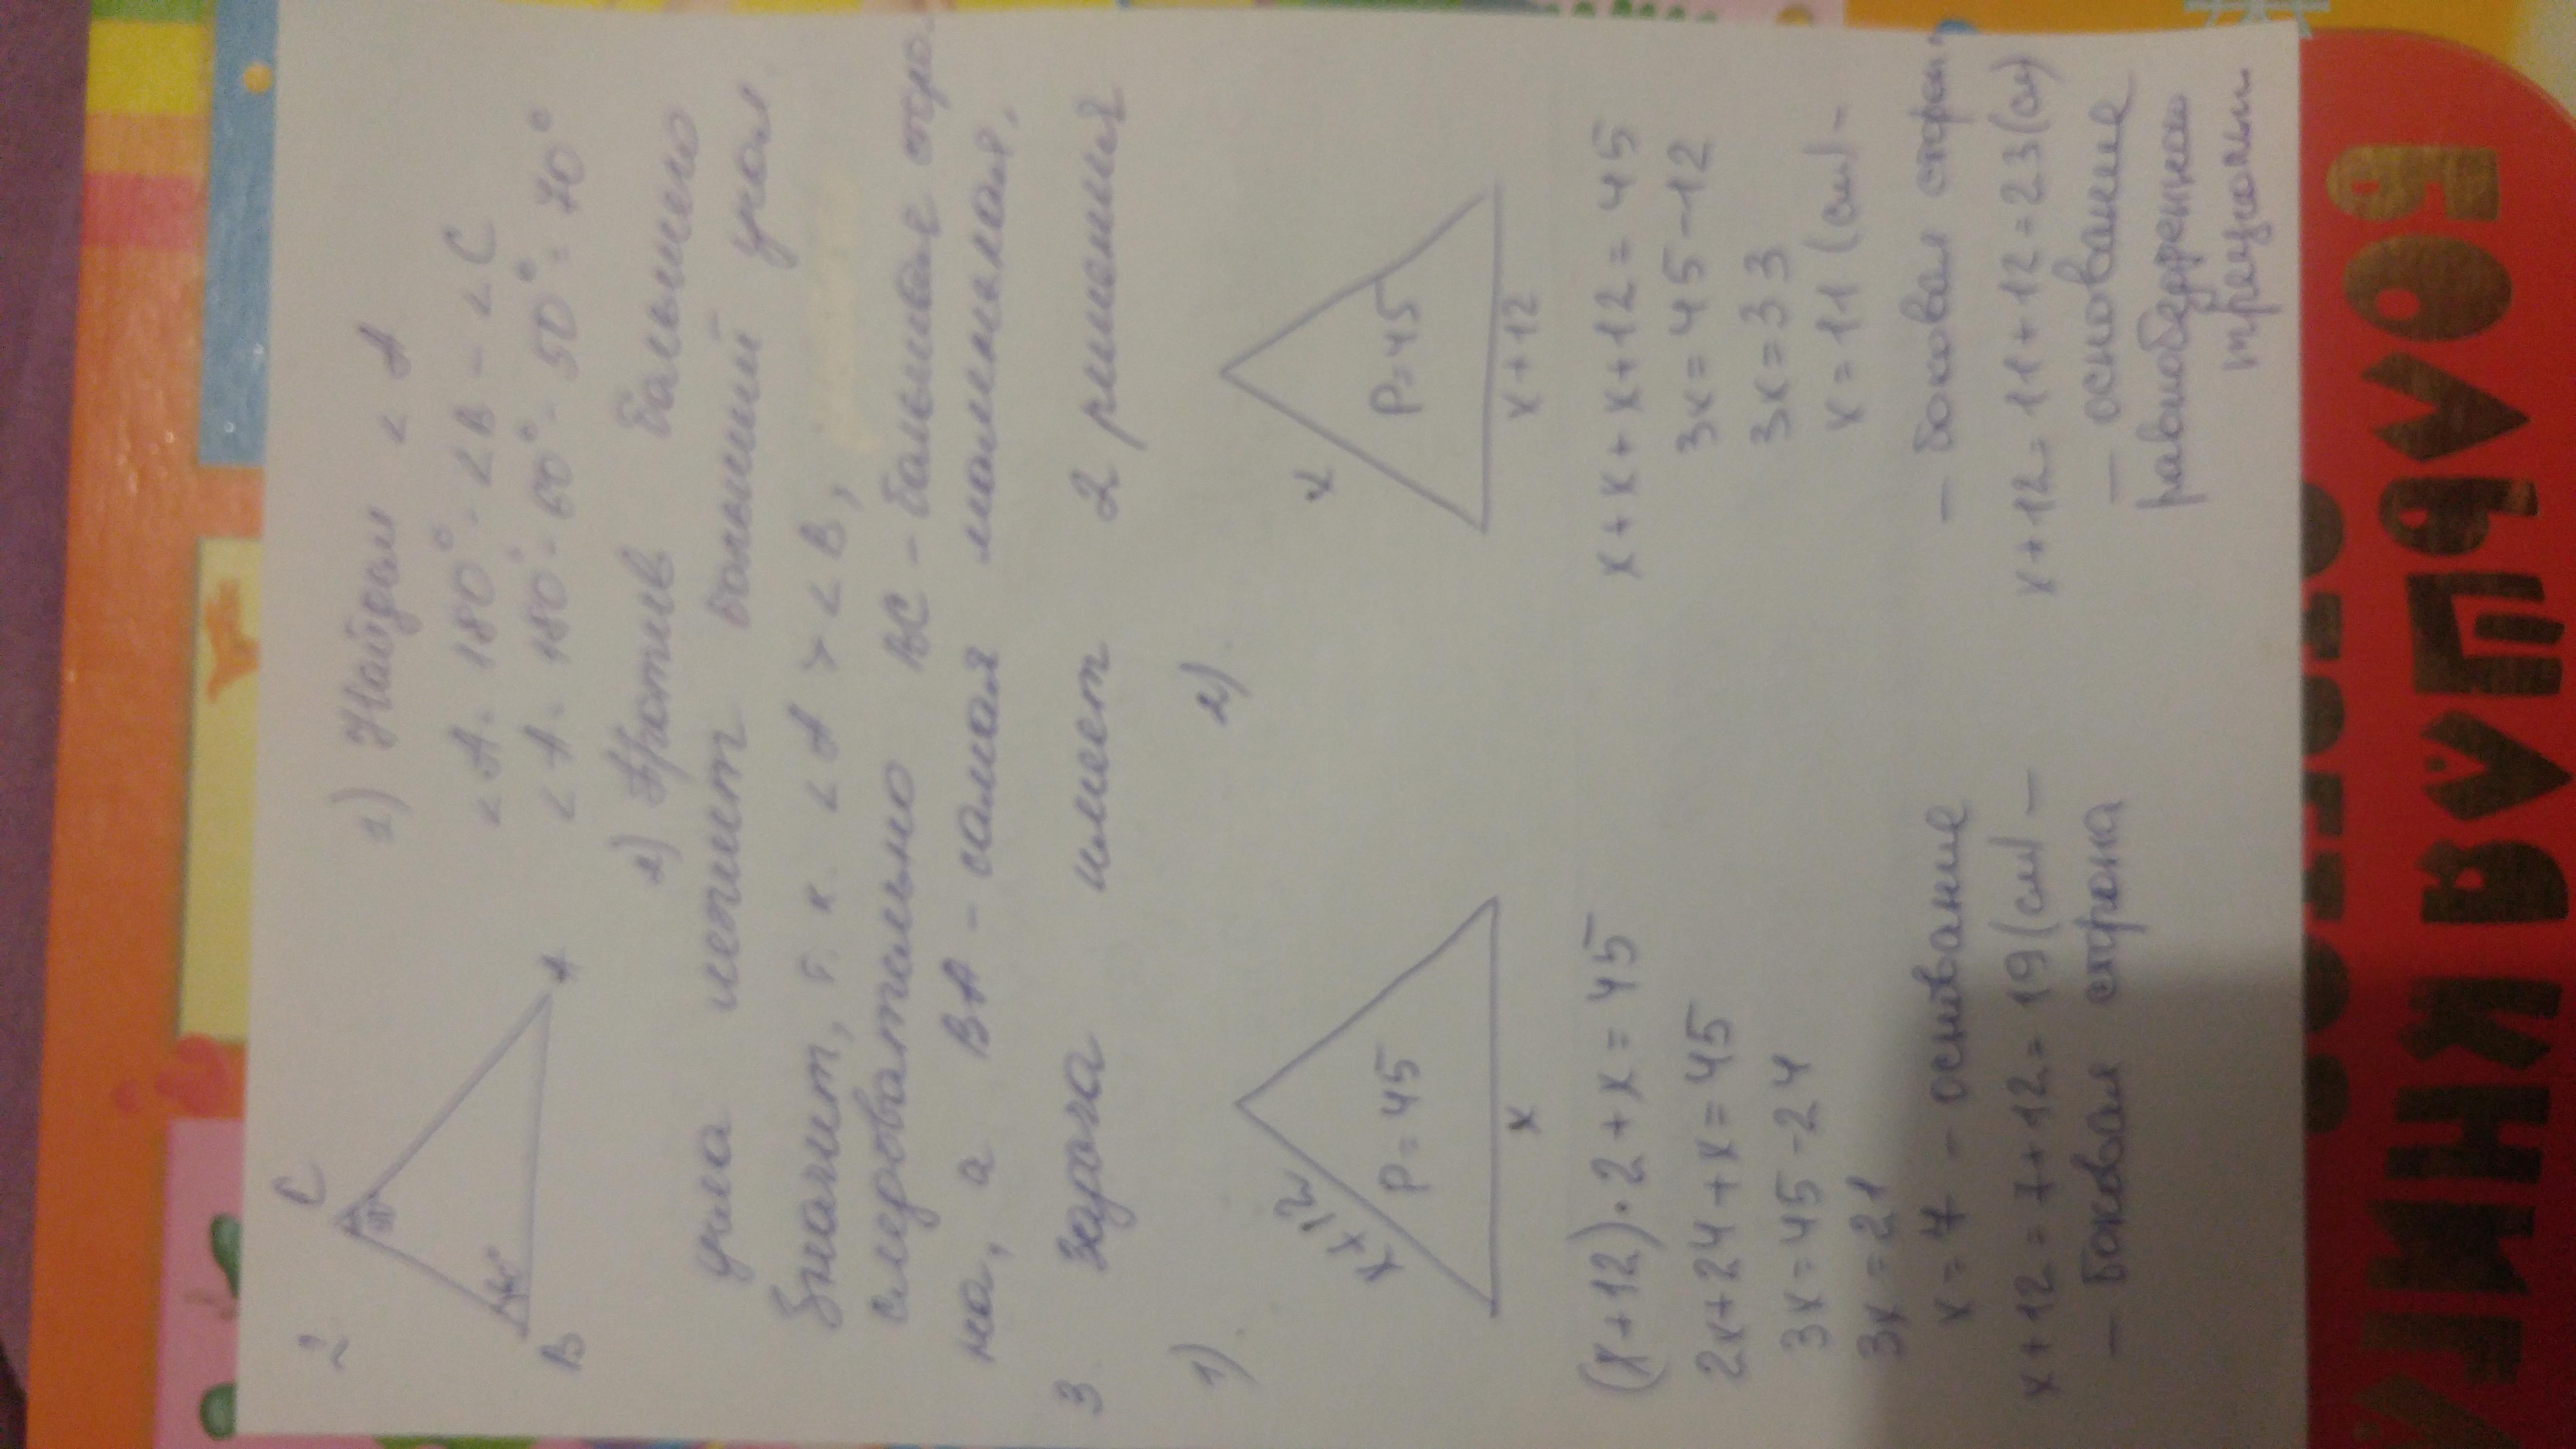 2
C
B
A
1) Найдём < A
< A = 180° - < B - < C
< A = 180° - 60° - 50° = 70°
2) Против большего
угла лежит больший угол
Значит, т. к. < A > < B,
следовательно BC - большая сторо
на, а BA - самая маленькая.
3. Задача имеет 2 решения
1)
x+12
P=45
x
(x+12)·2+x=45
2x+24+x=45
3x=45-24
3x=21
x=7 - основание
x+12=7+12=19(см) -
- боковая сторона
2)
x
P=45
x+12
x+x+x+12=45
3x=45-12
3x=33
x=11 (см) -
- боковая сторон
x+12=11+12=23(см)
- основание
равнобедренного
треугольн
БОЛЬШАЯ КНИГА